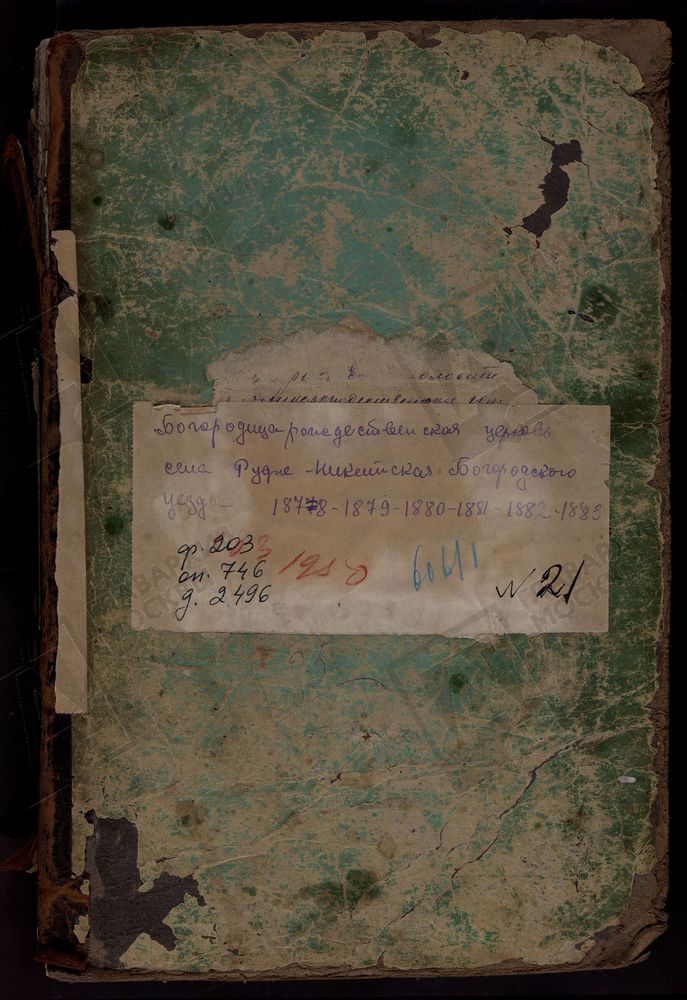 волости
Богородицерождественская церковь
села Рудне-Никитская Богородского
уезда 1878-1879-1880-1881-1882-1883
ф. 203
оп. 746
д. 2496
606/1
N 21